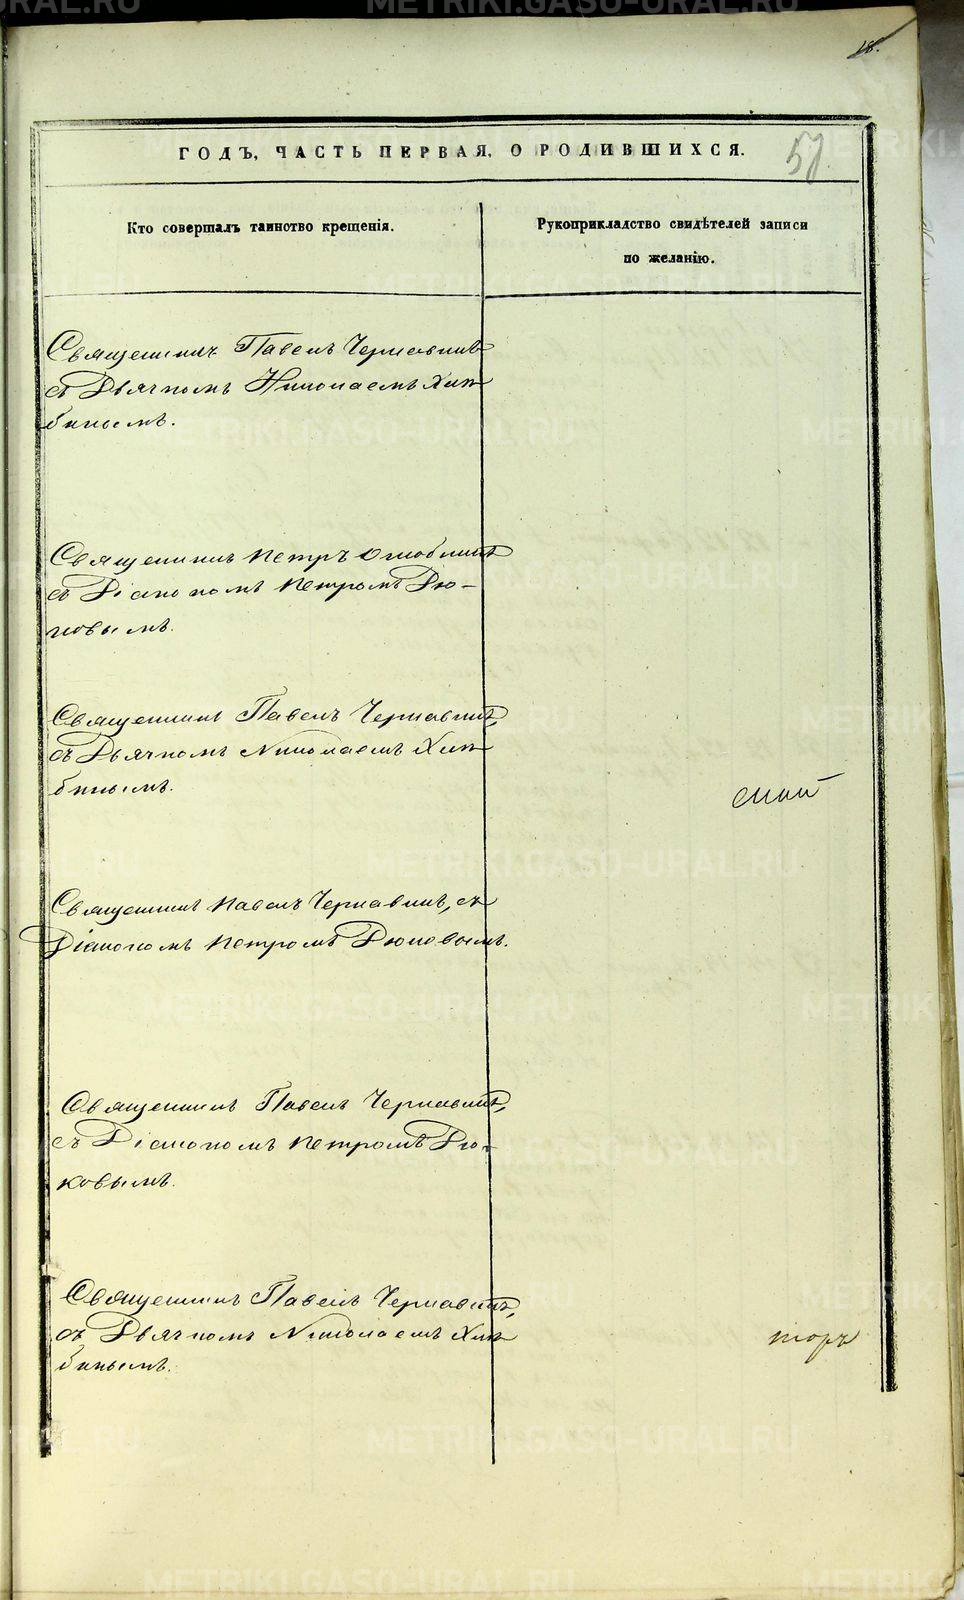 18.
ГОДЪ, ЧАСТЬ ПЕРВАЯ, О РОДИВШИХСЯ.
Кто совершалъ таинство крещенія.
Рукоприкладство свидѣтелей записи
по желанію.
Священникъ Павелъ Чернавинъ
съ Дьячкомъ Николаемъ Хлѣ
бинымъ.
Священникъ Петръ Оглоблинъ
съ Діакономъ Петромъ Дю-
ковымъ.
Священникъ Павелъ Чернавинъ,
съ Дьячкомъ Николаемъ Хлѣ
бинымъ.
Священникъ Павелъ Чернавинъ, съ
Діакономъ Петромъ Дюковымъ.
Священникъ Павелъ Чернавинъ,
съ Діакономъ Петромъ Дю-
ковымъ.
Священникъ Павелъ Чернавинъ,
съ Дьячкомъ Николаемъ Хлѣ
бинымъ.
METRIKI.GASO-URAL.RU